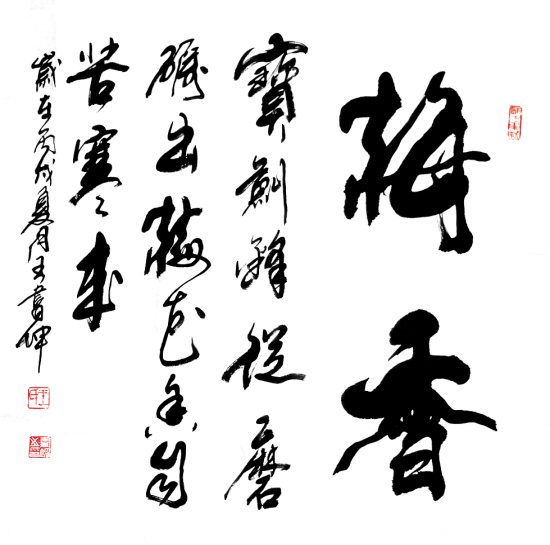 梅香
寶劍鋒從磨
礪出梅花香自
苦寒來
歲在丙戌夏月王書坤